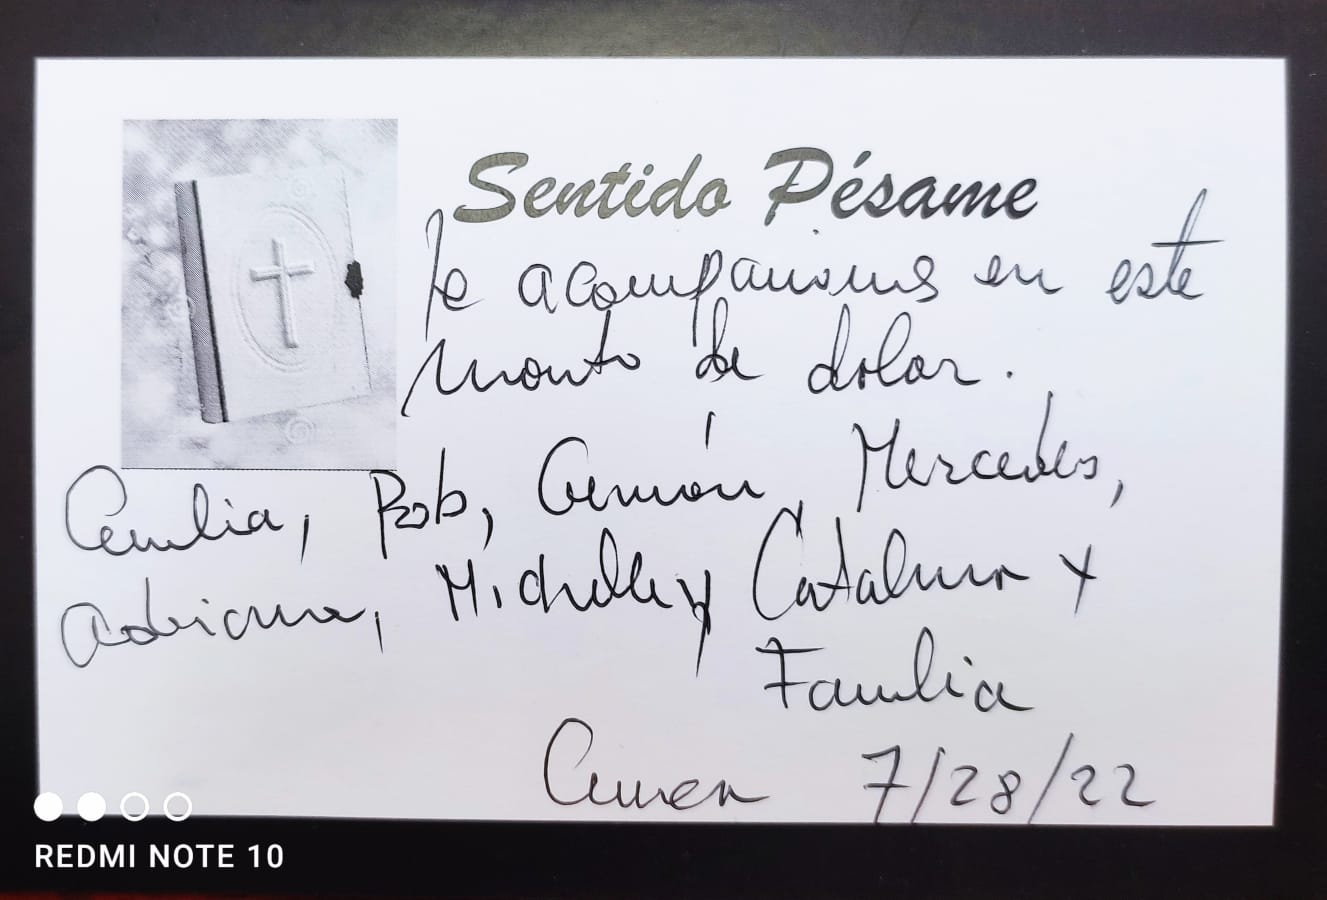 Sentido Pésame
Te acompañamos en este
momento de dolor.
Cecilia, Rob, Germán, Mercedes,
Adriana, Michelle y Catalina y
Familia
Amen 7/28/22
REDMI NOTE 10